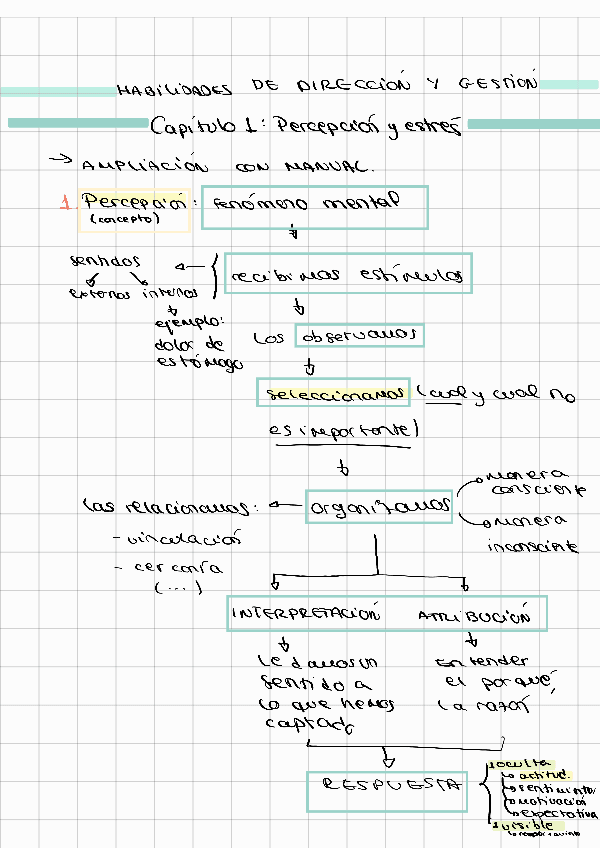 HABILIDADES DE DIRECCIÓN Y GESTIÓN
Capítulo 1: Percepción y estrés
→ AMPLIACIÓN CON MANUAL.
1. Percepción: fenómeno mental
(concepto)
sentidos
recibimos estímulos
externos internos
ejemplo:
dolor de
estómago
los observamos
seleccionamos (cual y cual no
es importante)
manera
consciente
las relacionamos: ← organizamos
manera
inconsciente
- vinculación
- cercanía
(...)
INTERPRETACIÓN ATRIBUCIÓN
le damos un
sentido a
lo que hemos
captado
Entender
el porqué,
la razón
RESPUESTA
1 oculta
↳ actitud.
↳ sentimiento
↳ motivación
↳ expectativa
1 visible